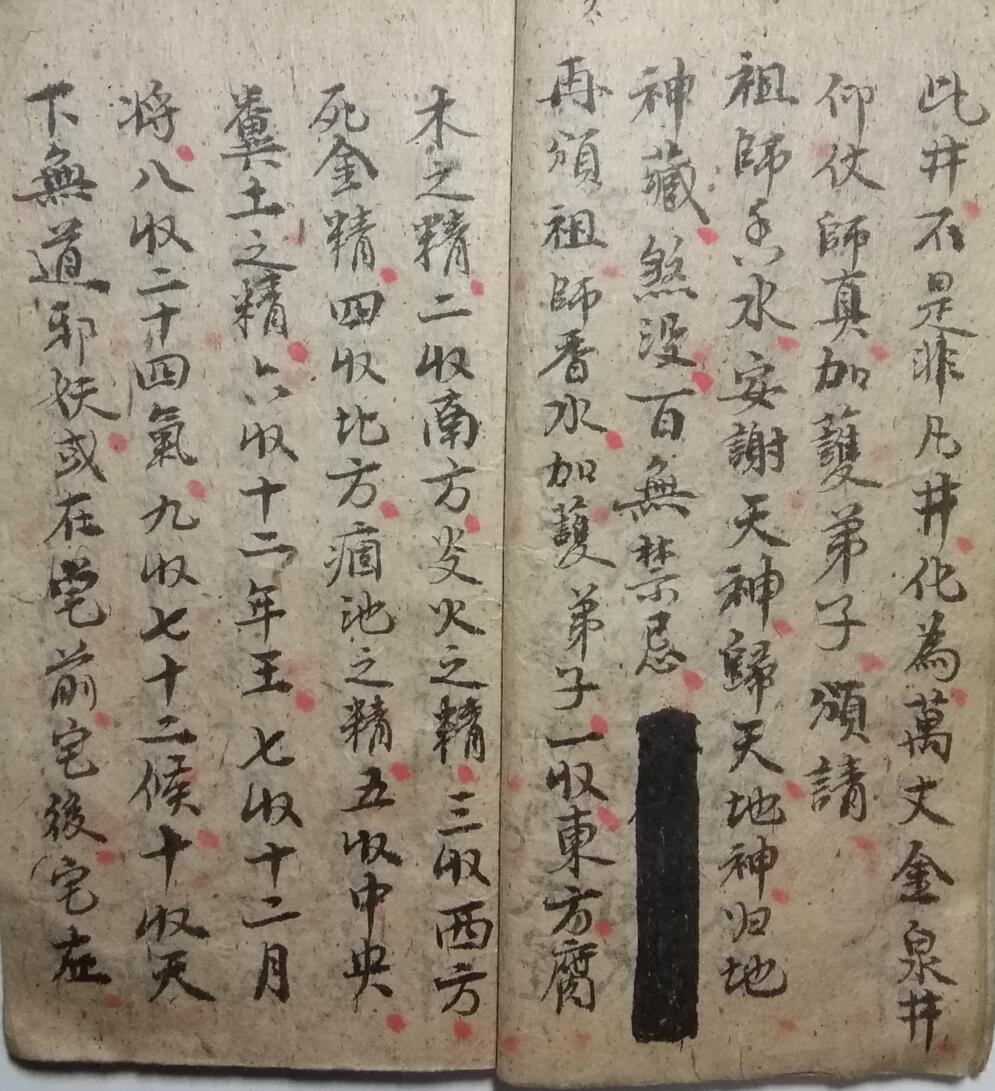 此井不是非凡井化為萬丈金泉井
仰伏師真加護弟子頒請
祖師香水安謝天神歸天地神归地
神藏煞没百無禁忌
再頒祖師香水加護弟子一收東方腐
木之精二收南方災火之精三收西方
死金精四收北方痼池之精五收中央
糞土之精六收十二年王七收十二月
将八收二十四氣九收七十二候十收天
下無道邪妖或在宅前宅後宅左